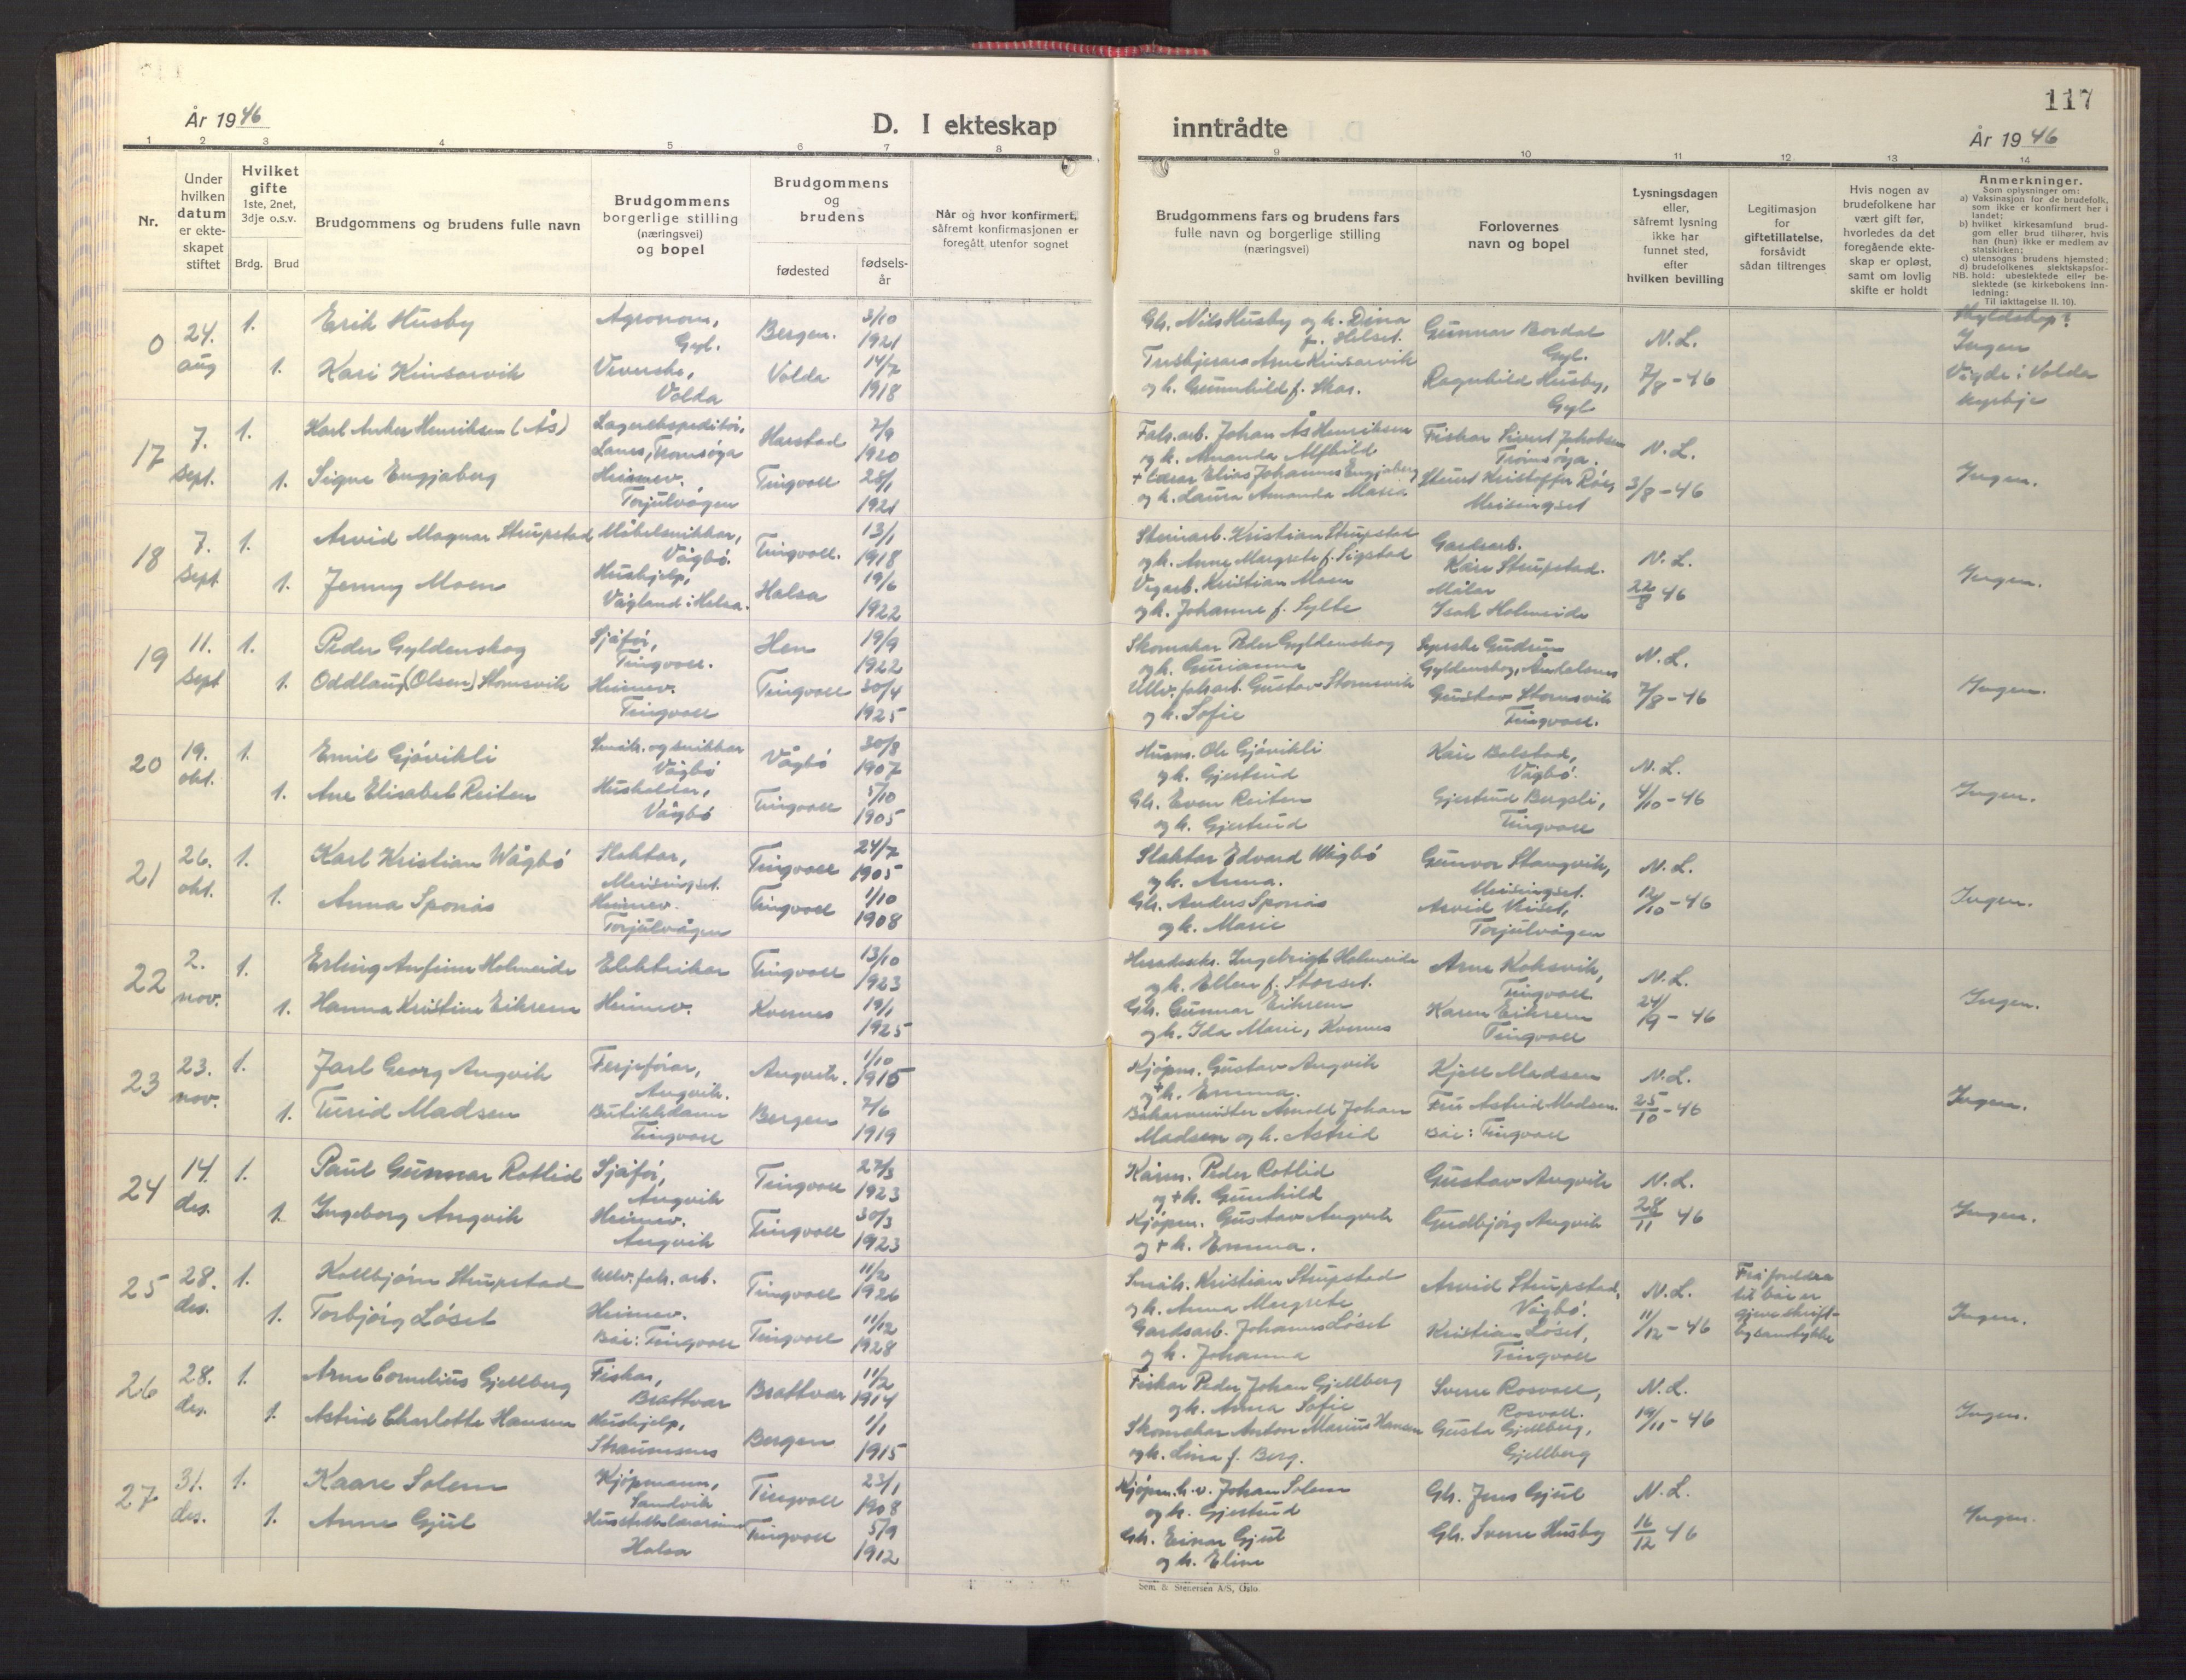 117
År 1946
D. I ekteskap inntrådte
År 1946
1 2 3 4 5 6 7 8 9 10 11 12 13 14
Nr.
Under hvilken datum er ekteskapet stiftet
Hvilket gifte 1ste, 2net, 3dje o.s.v.
Brdg. Brud
Brudgommens og brudens fulle navn
Brudgommens borgerlige stilling (næringsvei) og bopel
Brudgommens og brudens
fødested
fødselsår
Når og hvor konfirmert, såfremt konfirmasjonen er foregått utenfor sognet
Brudgommens fars og brudens fars fulle navn og borgerlige stilling (næringsvei)
Forlovernes navn og bopel
Lysningsdagen eller, såfremt lysning ikke har funnet sted, efter hvilken bevilling
Legitimasjon for giftetillatelse, forsåvidt sådan tiltrenges
Hvis nogen av brudefolkene har vært gift før, hvorledes da det foregående ekteskap er opløst, samt om lovlig skifte er holdt
Anmerkninger.
Som oplysninger om:
a) Vaksinasjon for de brudefolk, som ikke er konfirmert her i landet;
b) hvilket kirkesamfund brudgom eller brud tilhører, hvis han (hun) ikke er medlem av statskirken;
c) utensogns brudens hjemsted;
d) brudefolkenes slektskapsforhold: ubeslektede eller beslektede (se kirkebokens innledning;
NB. Til iakttagelse II. 10).
0 24. aug 1. Erik Husby Agronom, Gyl. Bergen. 3/10 1921
Gbr. Nils Husby og k. Dina f. Helset. Gunnar Bordal Gyl. N.L. Skyldskap? Ingen
1. Kari Kinsarvik Veverske, Volda Volda 14/7 1918
Arne Kinsarvik og k. Gunnhild f. Skar. Ragnhild Husby, Gyl 7/8-46 Vigde i Volda kyrkje
17 7. sept. 1. Karl Anker Henriksen (Ås) Lagerekspeditør, Lanes, Tromsøya Harstad 7/9 1920
Fabr.arb. Johan Ås Henriksen og k. Amanda Alfhild Fiskar Sivert Jakobsen Tromsøya. N.L.
1. Signe Engjaberg Heimev., Torjulvågen Tingvoll 28/1 1921
+ Lærar Elias Johannes Engjaberg og k. Laura Amanda Marie Kristoffer Meisingset 3/8-46 Ingen.
18 7. sept 1. Arvid Magnar Strupstad Møbelsnikkar, Vågbø. Tingvoll. 13/1 1918
Steinarb. Kristian Strupstad og k. Anne Margrete f. Sigstad Gardsarb. Kåre Strupstad. N.L.
1. Jenny Moen Hushjelp, Vågland i Halsa. Halsa 19/6 1922
Vegarb. Kristian Moen og k. Johanne f. Sylte Målar Isak Holmeide 22/8 46 Ingen.
19 11. sept 1. Peder Gyldenskog Sjåfør, Tingvoll. Hen 19/9 1922
Skomakar Peder Gyldenskog og k. Gurianna Gudrun Gyldenskog, Åndalsnes N.L.
1. Oddlaug (Olsen) Stomsvik Heimev. Tingvoll Tingvoll 30/4 1925
Ullv.fabr.arb. Gustav Stomsvik og k. Sofie Gustav Stomsvik Tingvoll. 7/8-46 Ingen.
20 19. okt. 1. Emil Gjøvikli Småbr. og snikkar Vågbø Vågbø 30/8 1907
Husm. Ole Gjøvikli og k. Gjertrud Kåre Bolstad, Vågbø. N.L.
1. Ane Elisabet Reiten Husholder, Vågbø Tingvoll 5/10 1905
Gbr. Even Reiten og k. Gjertrud Gjertrud Bergsli, Tingvoll 4/10-46 Ingen.
21 26. okt. 1. Karl Kristian Wågbø Slaktar, Meisingset. Tingvoll 24/7 1905
Slaktar Edvard Wågbø og k. Anna. Gunvor Stangvik, Meisingset. N.L.
1. Anna Sponås Heimev. Torjulvågen Tingvoll 1/10 1908
Gbr. Anders Sponås og k. Marie Arvid Torjulvågen 12/10-46 Ingen.
22 2. nov. 1. Erling Anfinn Holmeide Elektrikar Tingvoll 13/10 1923
Ingebrigt Holmeide og k. Ellen f. Storset. Arne Koksvik, Tingvoll. N.L.
1. Hanna Kristine Eikrem Heimev. Kvernes 19/1 1925
Gbr. Gunnar Eikrem og k. Ida Marie, Kvernes Karen Eikrem Tingvoll 24/9-46 Ingen.
23 23. nov. 1. Jarl Georg Angvik Ferjeførar, Angvik. Angvik. 1/10 1915
Kjøpm. Gustav Angvik + k. Emma. Kjell Madsen N.L.
1. Turid Madsen Butikkdame Tingvoll Bergen 7/6 1919
Bakarmeister Arnold Johan Madsen og k. Astrid Fru Astrid Madsen. Båe: Tingvoll 25/10-46 Ingen.
24 14. des. 1. Paul Gunnar Rotlid Sjåfør, Angvik Tingvoll 27/3 1923
Peder Rotlid og + k. Gunhild Gustav Angvik N.L.
1. Ingeborg Angvik Heimev. Angvik Tingvoll 30/3 1923
Kjøpm. Gustav Angvik og + k. Emma. Gudbjørg Angvik 28/11 46 Ingen.
25 28. des. 1. Kolbjørn Strupstad Ullv.fabr.arb. Tingvoll 11/2 1926
Småbr. Kristian Strupstad og k. Anna Margrete Arvid Strupstad, Vågbø. N.L. Frå foreldra til båe er gjeve skriftleg samtykke
1. Torbjørg Løset Heimev. Båe: Tingvoll Tingvoll 11/12 1928
Gardsarb. Johannes Løset og k. Johanna Kristian Løset, Tingvoll 11/12-46 Ingen.
26 28. des. 1. Arne Cornelius Gjellberg Fiskar, Brattvær Brattvær 11/2 1914
Fiskar Peder Johan Gjellberg og k. Anna Sofie Sverre Rosvoll, Rosvoll. N.L.
1. Astrid Charlotte Hansen Hushjelp, Straumsnes Bergen 1/1 1915
Skomakar Anton Marius Hansen og k. Lina f. Berg. Gusta Gjellberg, Gjellberg 19/11-46 Ingen.
27 31. des. 1. Kaare Solem Kjøpmann, Sandvik Tingvoll 23/1 1908
Kjøpm. Johan Solem og k. Gjertrud Gbr. Jens Gjul N.L.
1. Anne Gjul Husstellærarinne Halsa Tingvoll 5/9 1912
Gbr. Einar Gjul og k. Eline Gbr. Sverre Husby 16/12 46 Ingen.
Sem & Stenersen A/S, Oslo